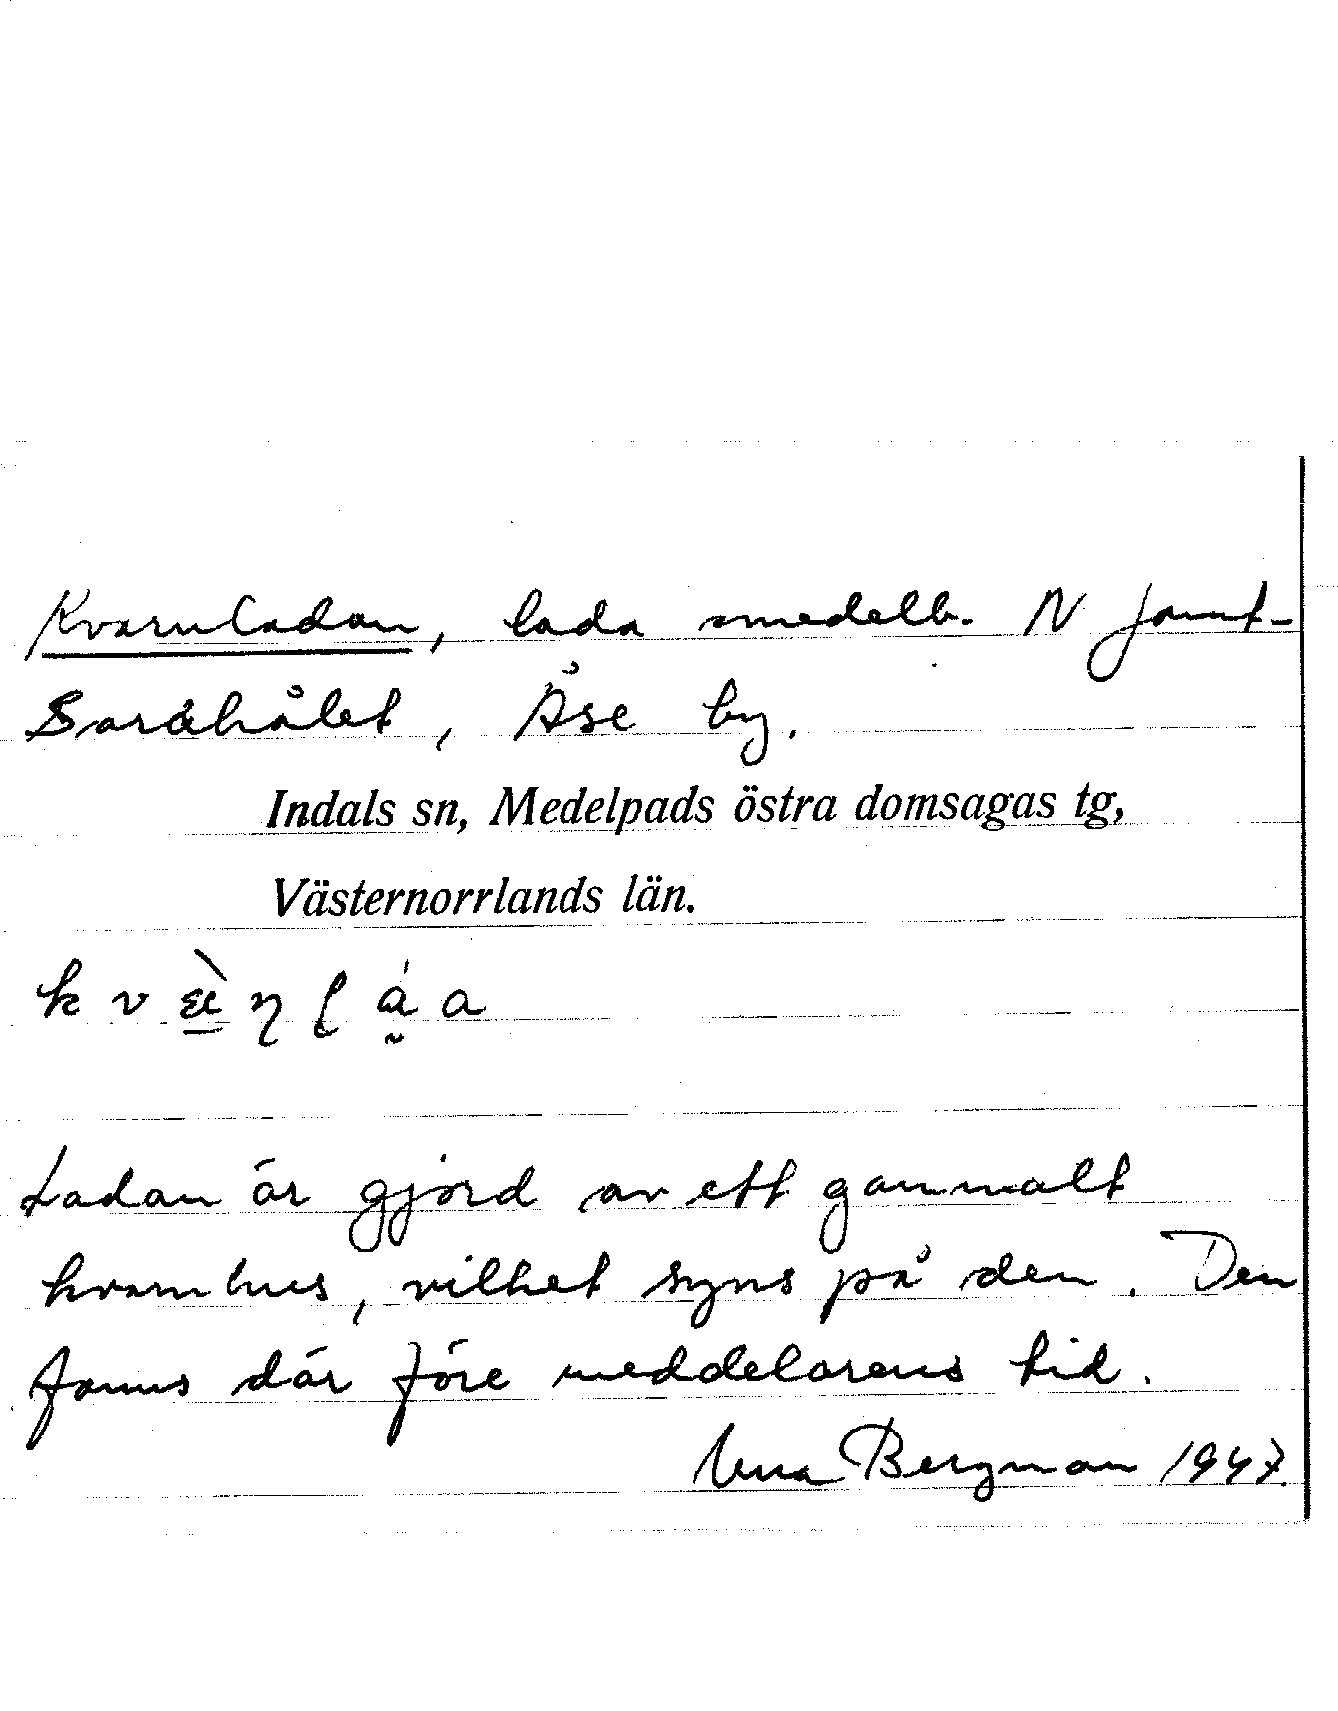 Kvarnladan, lada omedelb. N Jamt-
Saråhålet, Åse by.
Indals sn, Medelpads östra domsagas tg,
Västernorrlands län.
Ladan är gjord av ett gammalt
kvarnhus, vilket syns på den. Den
fanns där före meddelarens tid.
Bergman 1947